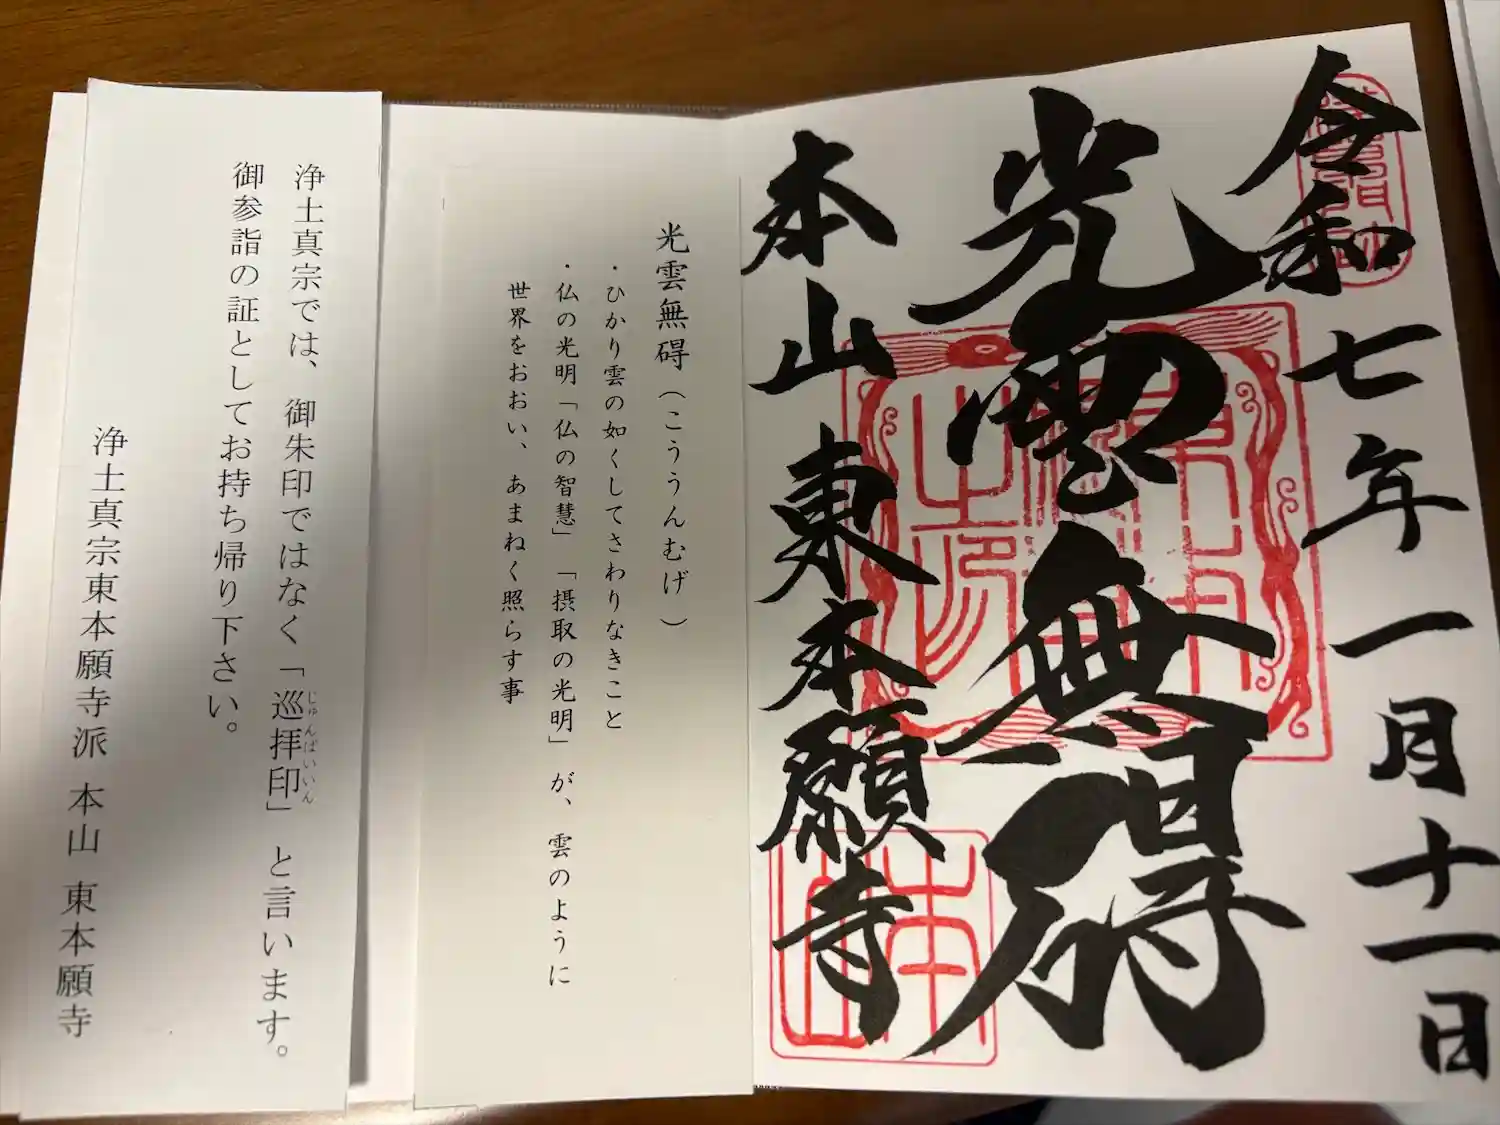 令和七年一月十一日
光雲無碍
本山東本願寺
光雲無碍(こううんむげ)
・ひかり雲の如くしてさわりなきこと
・仏の光明「仏の智慧」「摂取の光明」が、雲のように
世界をおおい、あまねく照らす事
浄土真宗では、御朱印ではなく「巡拝印」と言います。
じゅんぱいいん
御参詣の証としてお持ち帰り下さい。
浄土真宗東本願寺派 本山 東本願寺
本山